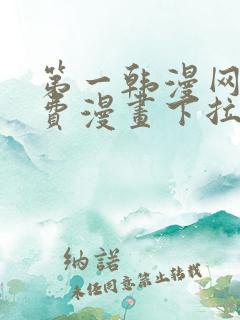 第一韩漫网
費漫畫下拉
納諾
未经同意禁止转载